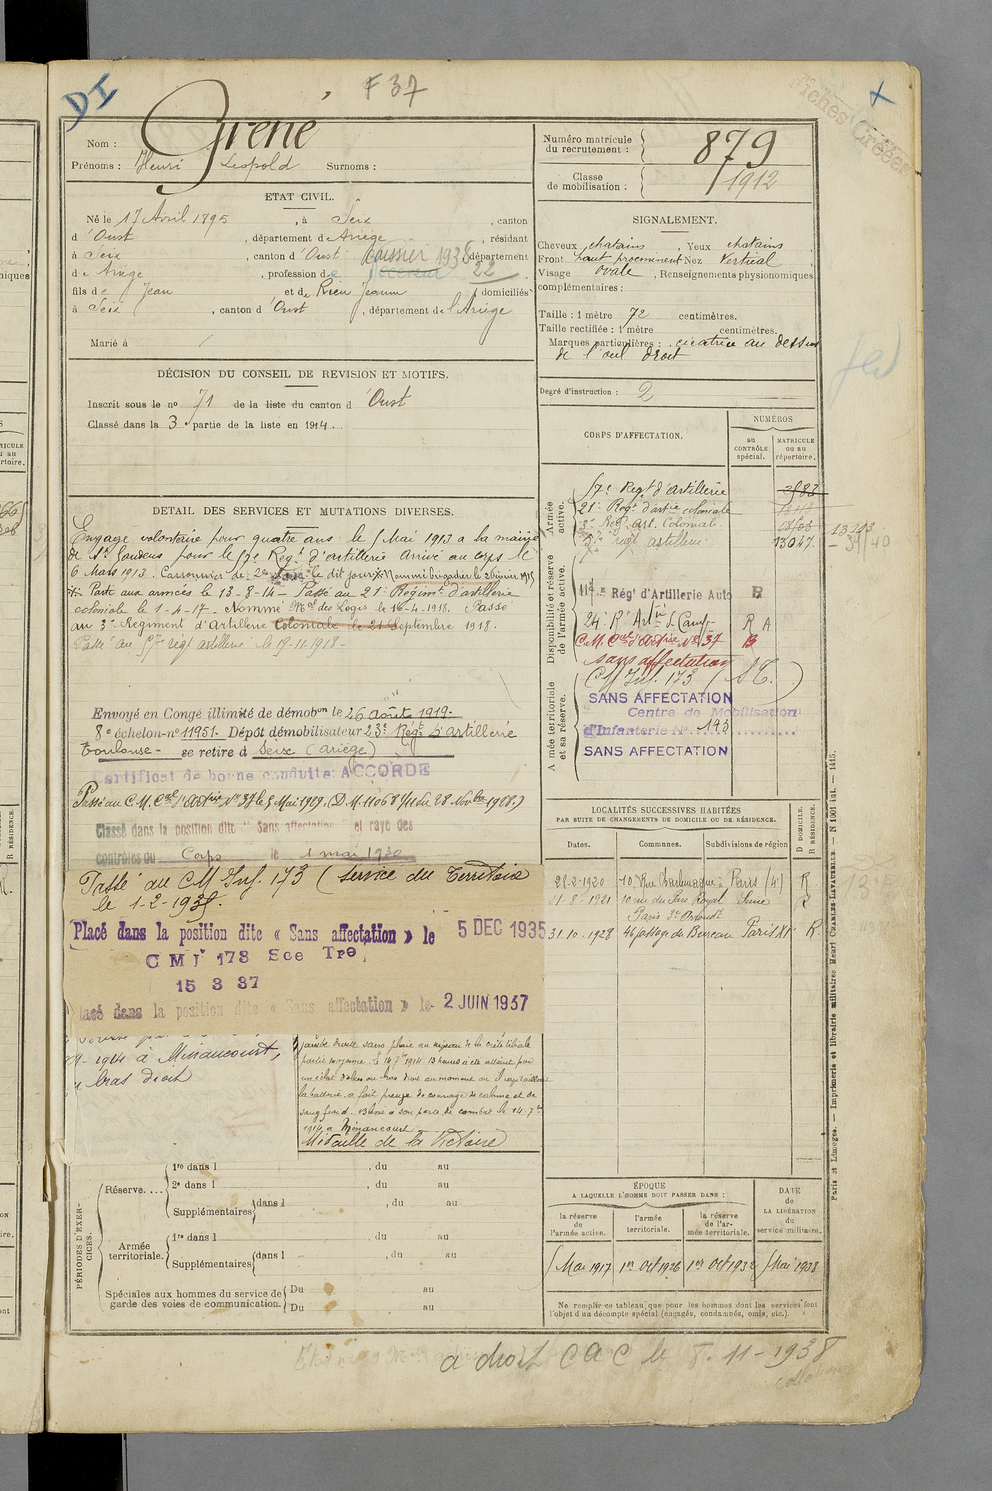 DI
F 37
fiches Créées
Nom : Gréné
Prénoms : Henri Léopold Surnoms :
Numéro matricule du recrutement : 879
Classe de mobilisation : 1912
ETAT CIVIL.
Né le 17 Avril 1895, à Seix, canton
d'Oust, département de Ariège, résidant
à Seix, canton d'Oust Caissier 1938 département
de Ariège, profession de 22
fils de Jean et de Rieu Jeanne domiciliés
à Seix, canton d'Oust, département de l'Ariège
Marié à /
SIGNALEMENT.
Cheveux chatains, Yeux chatains
Front haut proeminent Nez Vertical
Visage ovale, Renseignements physionomiques
complémentaires :
Taille : 1 mètre 72 centimètres.
Taille rectifiée : 1 mètre centimètres.
Marques particulières : cicatrice au dessus
de l'œil droit
Degré d'instruction : 2
DÉCISION DU CONSEIL DE REVISION ET MOTIFS.
Inscrit sous le no 71 de la liste du canton d'Oust
Classé dans la 3e partie de la liste en 1914.
DETAIL DES SERVICES ET MUTATIONS DIVERSES.
Engagé volontaire pour quatre ans le 5 Mai 1913 a la mairie
de St Gaudens pour le Regt d'artillerie Arrivé au corps le
6 Mars 1913. Canonnier de 2e classe le dit jour Nommé brigadier le
Parti aux armées le 13-8-14 - Passé au 21e Régimt d'artillerie
coloniale le 1-4-17 - Nommé Mal des Logis le 16-4-1918. Passé
au 3e Regiment d'Artillerie Coloniale le 21 Septembre 1918.
Passé au regt artillerie le 19-11-1918-
Envoyé en Congé illimité de démobon le 26 août 1919.
8e échelon-no 11951. Dépôt démobilisateur 23e Regt d'artillerie
Toulouse - se retire à Seix (ariège)
Certificat de bonne conduite ACCORDE
Passé au C.M. d'Artrie No 37 le 5 Mai 1929. (D.M. 11068 1/11 du 28 Novbre 1928.)
Classé dans la position dite "Sans affectation" et rayé des
contrôles du Corps le 1 mai 1930
Passé au CM Inf. 173 (Service du Territoire
le 1-2-1935.
Placé dans la position dite « Sans affectation » le 5 DEC 1935
C M I 173 Sce Tre
15 3 37
lacé dans la position dite « Sans affectation » le 2 JUIN 1937
9-1914 à Minaucourt,
bras droit
jambe droite sans plaie au niveau de la crête tibiale
un éclat d'obus au bras droit au moment où il ravitaillait
la batterie. a fait preuve de courage de calme et de
sang froid. Blessé à son poste de combat le 14-7bre
1914 a Minaucourt
Médaille de la Victoire
CORPS D'AFFECTATION.
NUMÉROS
au CONTRÔLE spécial.
MATRICULE OU AU répertoire.
Armée active.
Regt d'Artillerie
21e Regt d'artie coloniale
3e Regt Art. Coloniale
regt artillerie 13047
Disponibilité et réserve de l'armée active.
Régt d'Artillerie Auto R
24e Rt Artie d. Camp R A
C.M. d'Artrie No 37 B
sans affectation
Armée territoriale et sa réserve.
CM Inf. 173 (S.T.)
SANS AFFECTATION
Centre de Mobilisation
d'Infanterie No 173
SANS AFFECTATION
LOCALITÉS SUCCESSIVES HABITÉES
PAR SUITE DE CHANGEMENTS DE DOMICILE OU DE RÉSIDENCE.
D DOMICILE.
R RÉSIDENCE.
Dates. Communes. Subdivisions de région
28-2-1920 10, Rue Charlemagne à Paris (4e) R
1-8-1921 10 rue du Parc Royal Seine R
Paris 3e Arrondt
31.10.1928 46 passage du Bureau Paris XIe R.
ÉPOQUE
A LAQUELLE L'HOMME DOIT PASSER DANS :
DATE DE LA LIBÉRATION du service militaire.
la réserve de l'armée active.
l'armée territoriale.
la réserve de l'armée territoriale.
5 Mai 1917 1er Oct 1926 1er Oct 1932 5 Mai 1938
Ne remplir ce tableau que pour les hommes dont les services font
l'objet d'un décompte spécial (engagés, condamnés, omis, etc.).
PÉRIODES D'EXERCICES.
Réserve....
1re dans l , du au
2e dans l , du au
Supplémentaires dans l , du au
Armée territoriale.
1re dans l , du au
Supplémentaires dans l , du au
Spéciales aux hommes du service de garde des voies de communication.
Du au
Du au
a droit C A C le 8-11-1938
Paris et Limoges. — Imprimerie et librairie militaires Henri CHARLES-LAVAUZELLE. — N 1001 iut. — 1415.